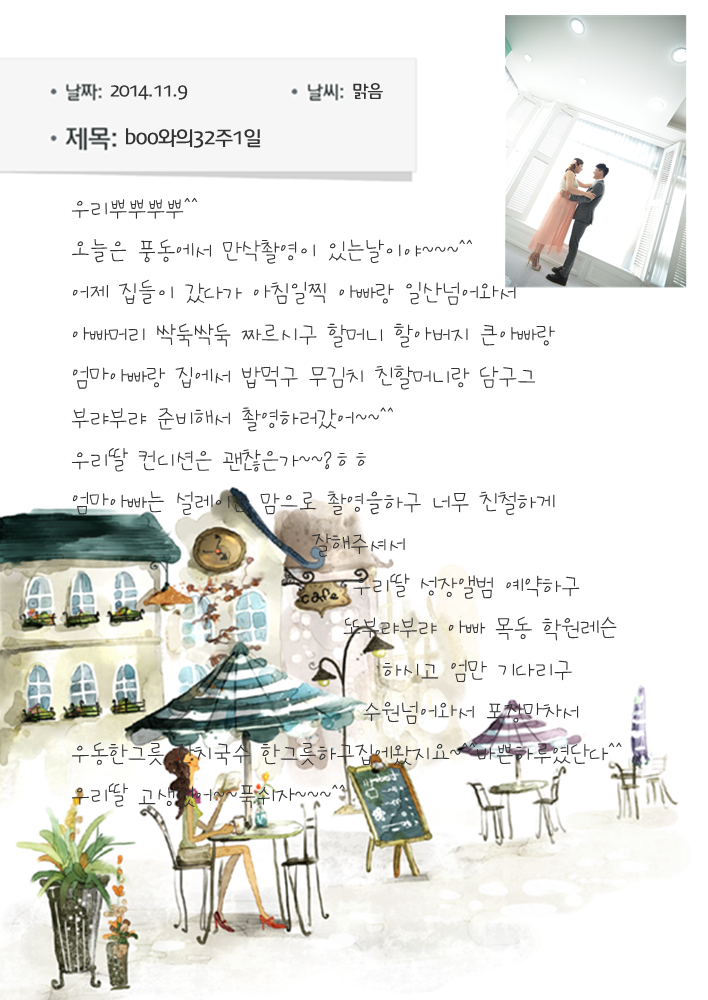 • 날짜: 2014.11.9 • 날씨: 맑음
• 제목: boo와의32주1일
우리뿌뿌뿌뿌^^
오늘은 풍동에서 만삭촬영이 있는날이야~~~^^
어제 집들이 갔다가 아침일찍 아빠랑 일산넘어와서
아빠머리 싹둑싹둑 짜르시구 할머니 할아버지 큰아빠랑
엄마아빠랑 집에서 밥먹구 무김치 친할머니랑 담구그
부랴부랴 준비해서 촬영하러갔어~~^^
우리딸 컨디션은 괜찮은가~~?ㅎㅎ
엄마아빠는 설레이는 맘으로 촬영을하구 너무 친철하게
잘해주셔서
우리딸 성장앨범 예약하구
또부랴부랴 아빠 목동 학원레슨
하시고 엄만 기다리구
수원넘어와서 포장마차서
우동한그릇 잔치국수 한그릇하구집에왔지요~^^바쁜하루였단다^^
우리딸 고생했어~~푹쉬자~~~^^
cafe